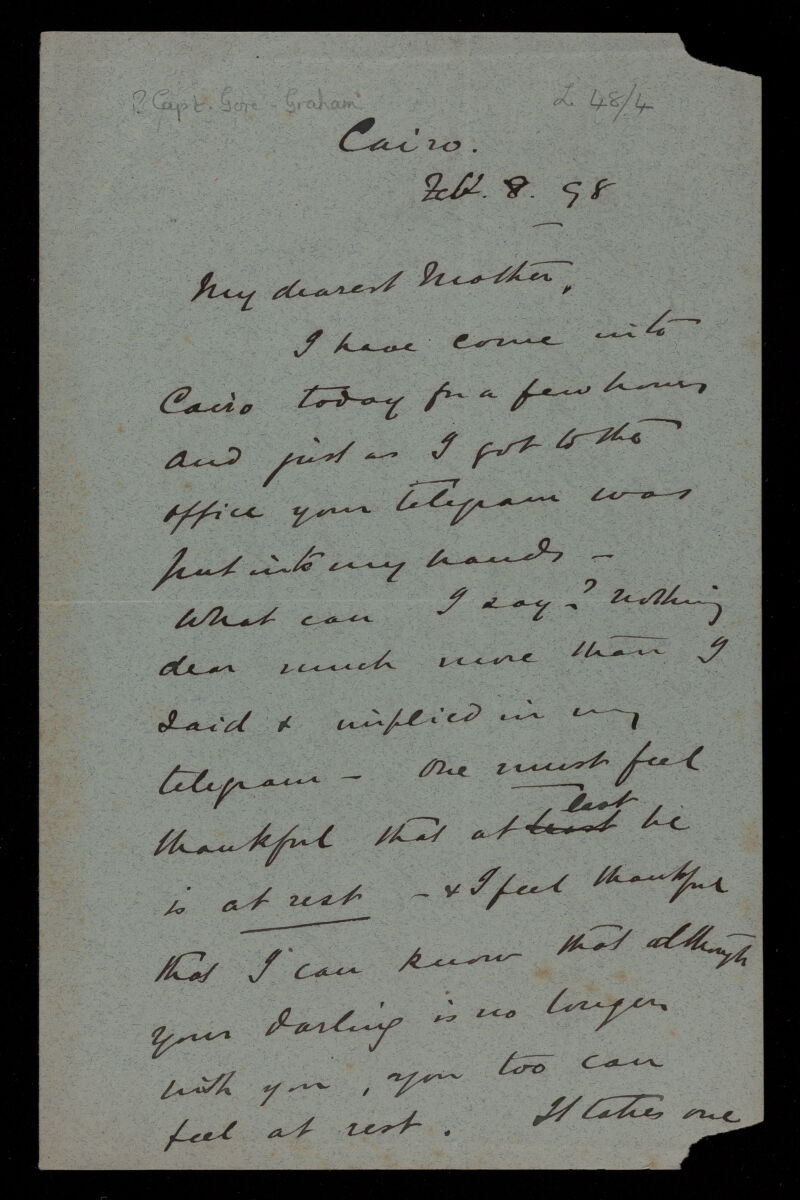 ? Capt. Gore-Graham
L. 48/4
Cairo.
Feb. 8. 98
My dearest Mother,
I have come into
Cairo today for a few hours
and just as I got to the
office your telegram was
put into my hands -
What can I say? Nothing
dear much more than I
said & implied in my
telegram - One must feel
thankful that at least last he
is at rest - & I feel thankful
that I can know that although
your darling is no longer
with you, you too can
feel at rest. It takes one